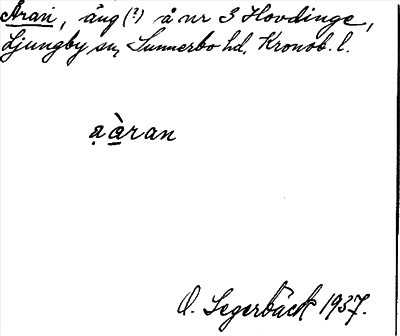 Aran, äng (?) å nr 3 Hovdinge,
Ljungby sn, Sunnerbo hd, Kronob. l.
ạ à̱ran
O. Segerbäck 1937.